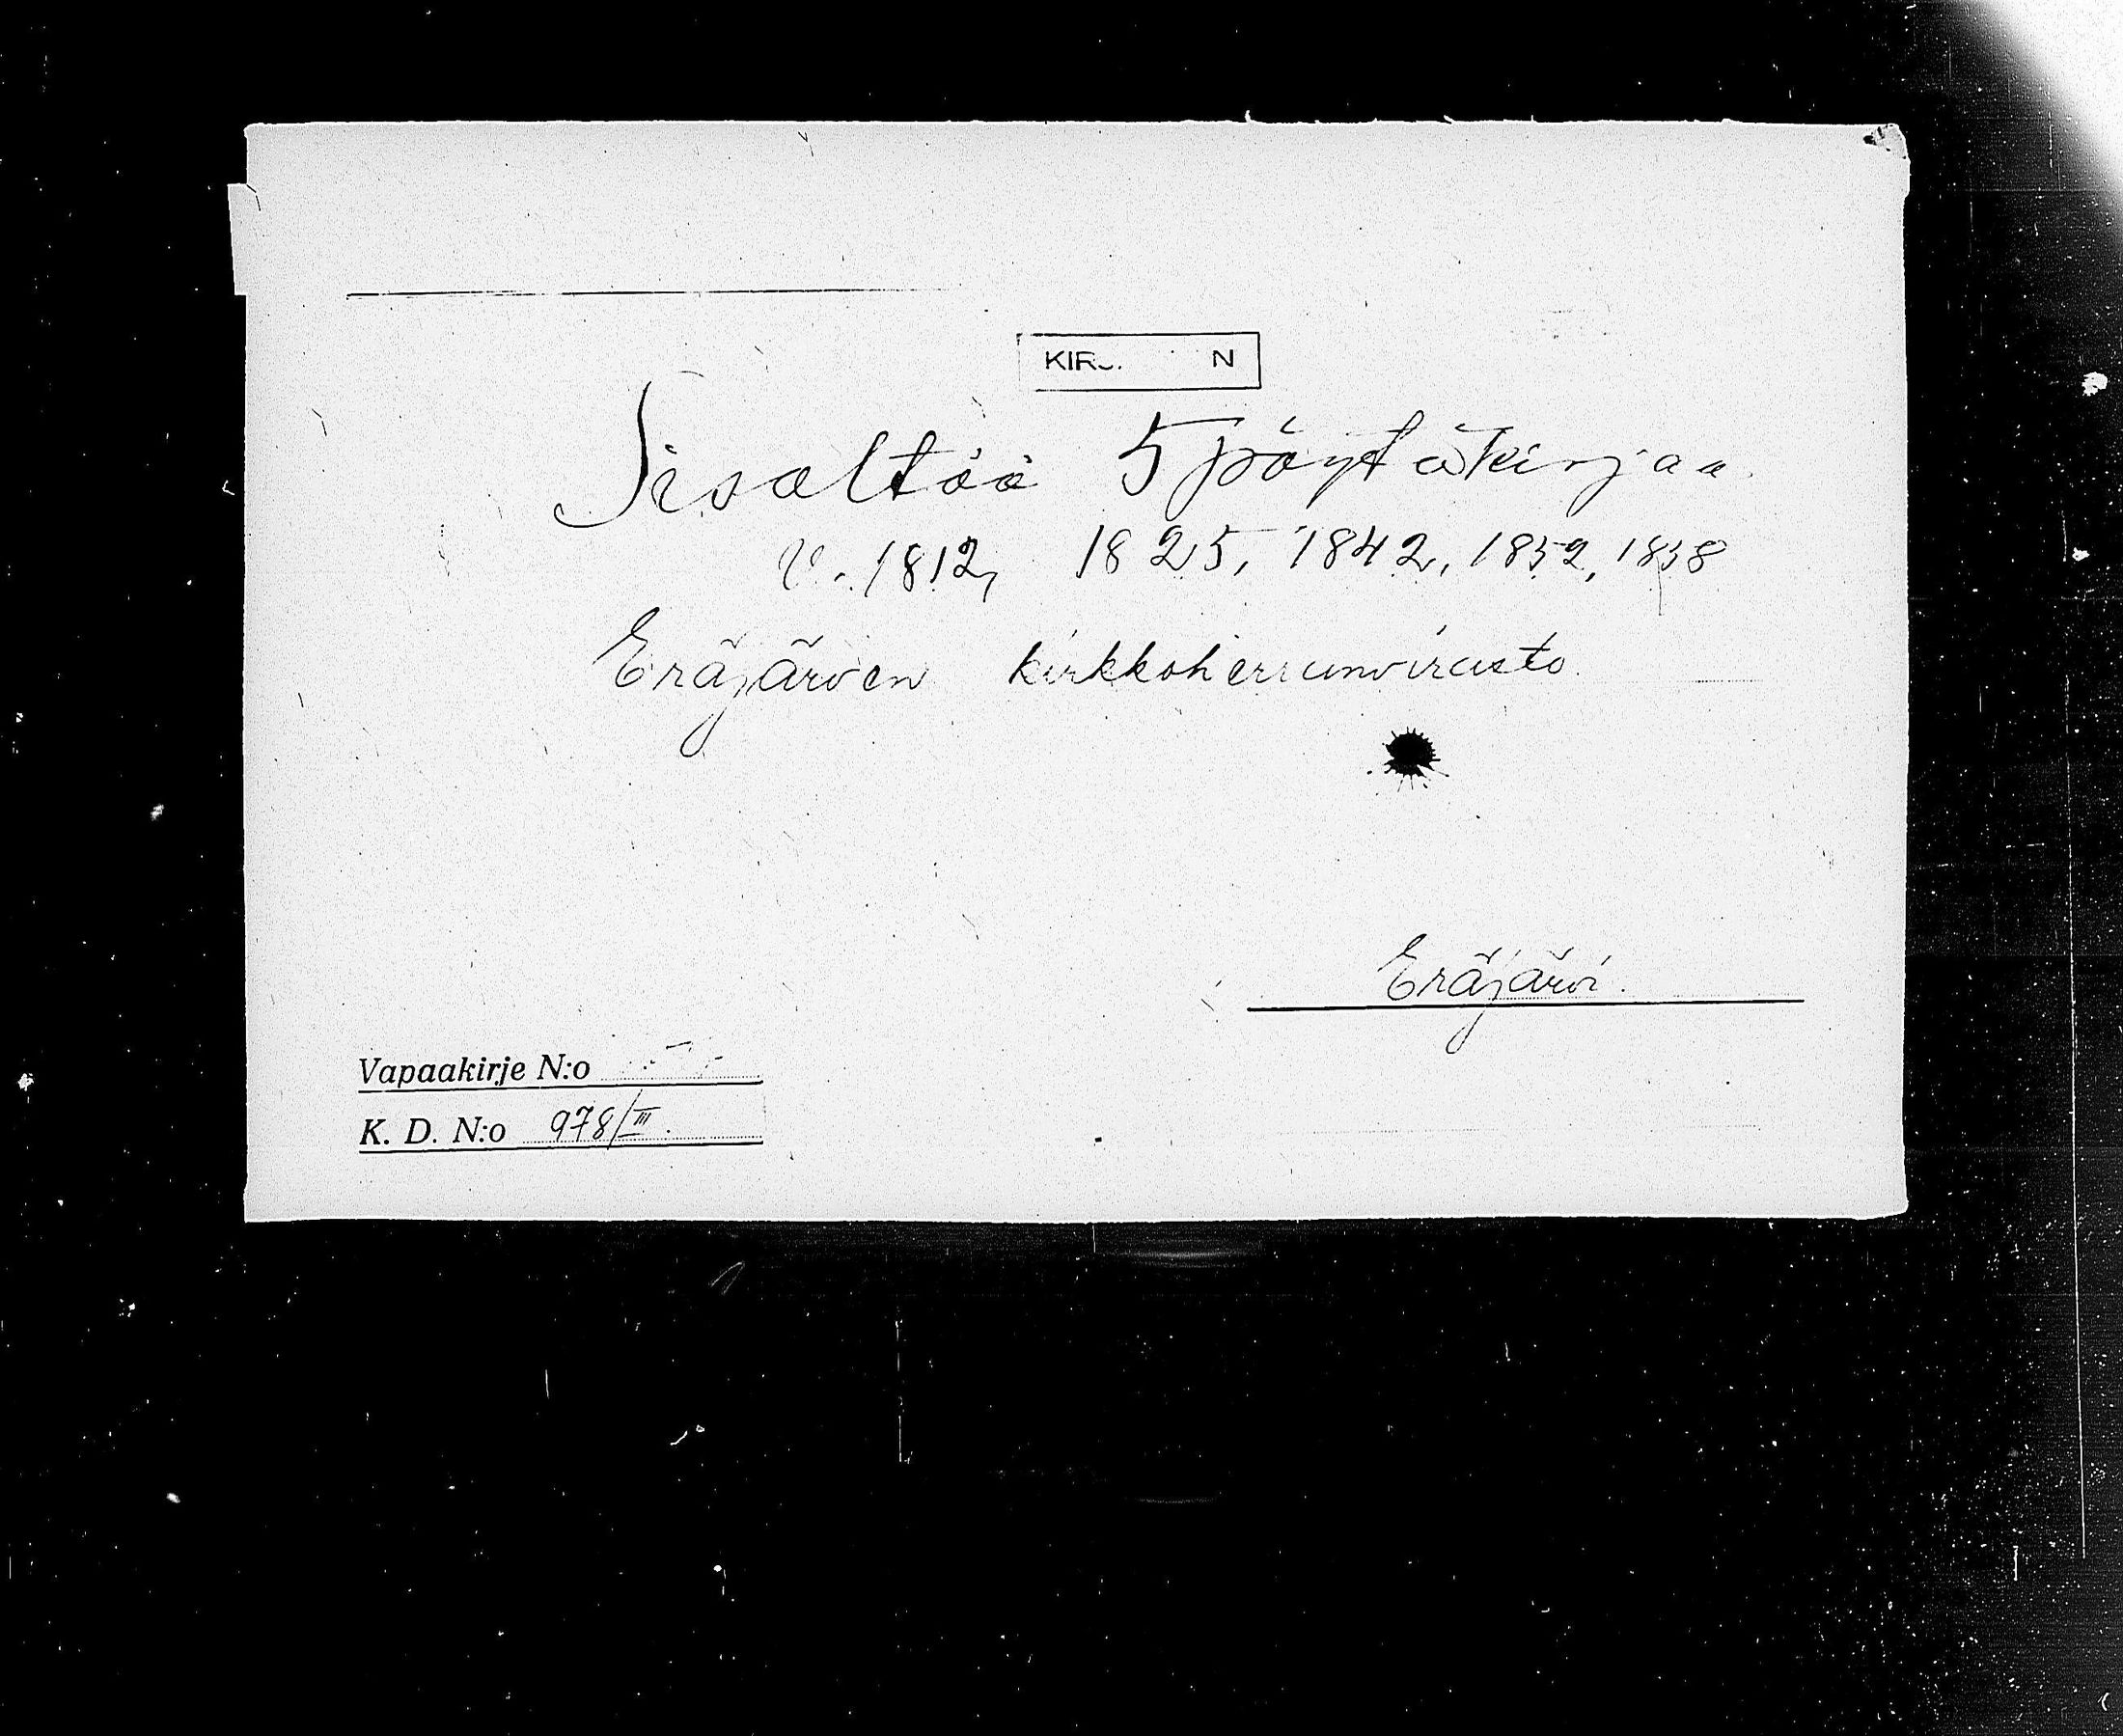 Sisältää 5 pöytäkirjaa
v. 1812, 1825, 1842, 1852, 1858
Eräjärven kirkkoherranvirasto
Eräjärvi.
Vapaakirje N:o
K. D. N:o 978/III.